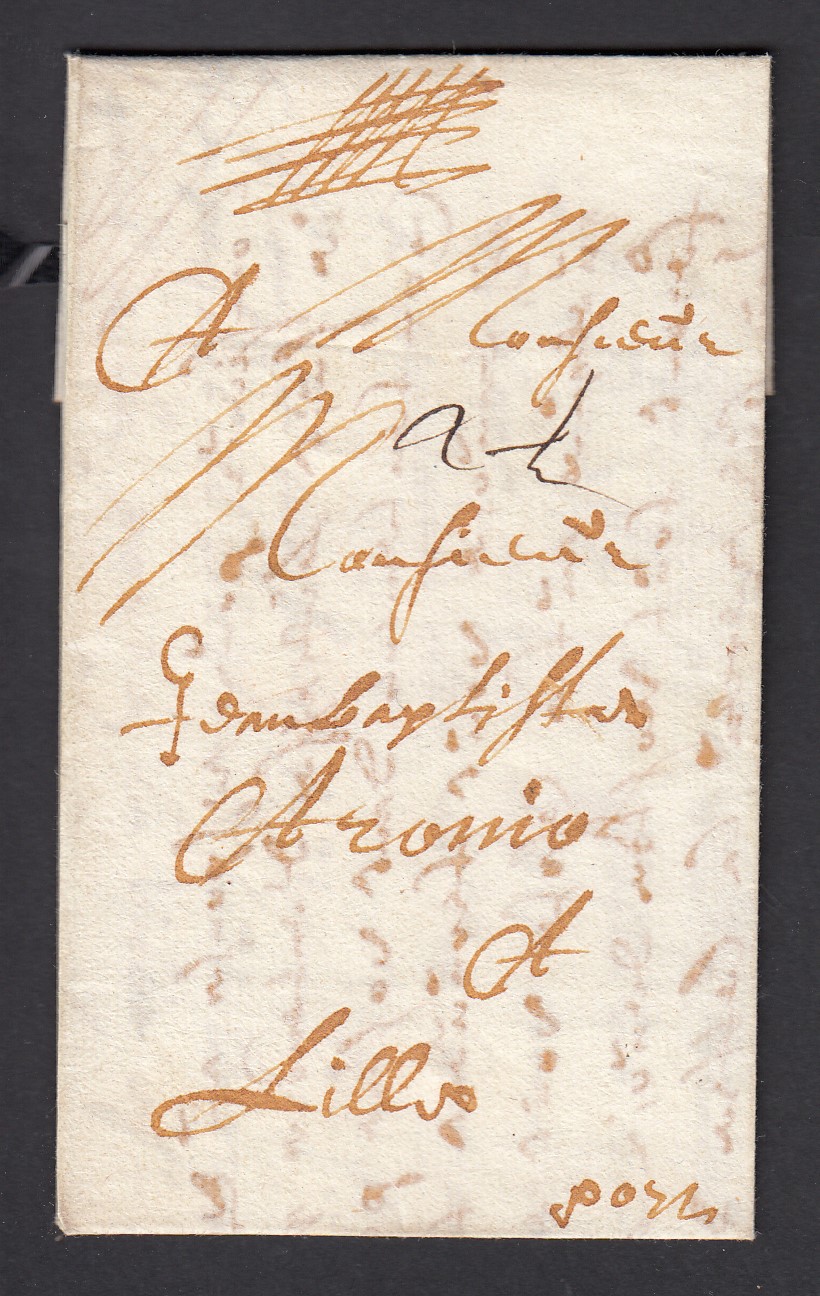 A Monsieur
Monsieur
Jean baptiste
Aronio
A
Lille
port